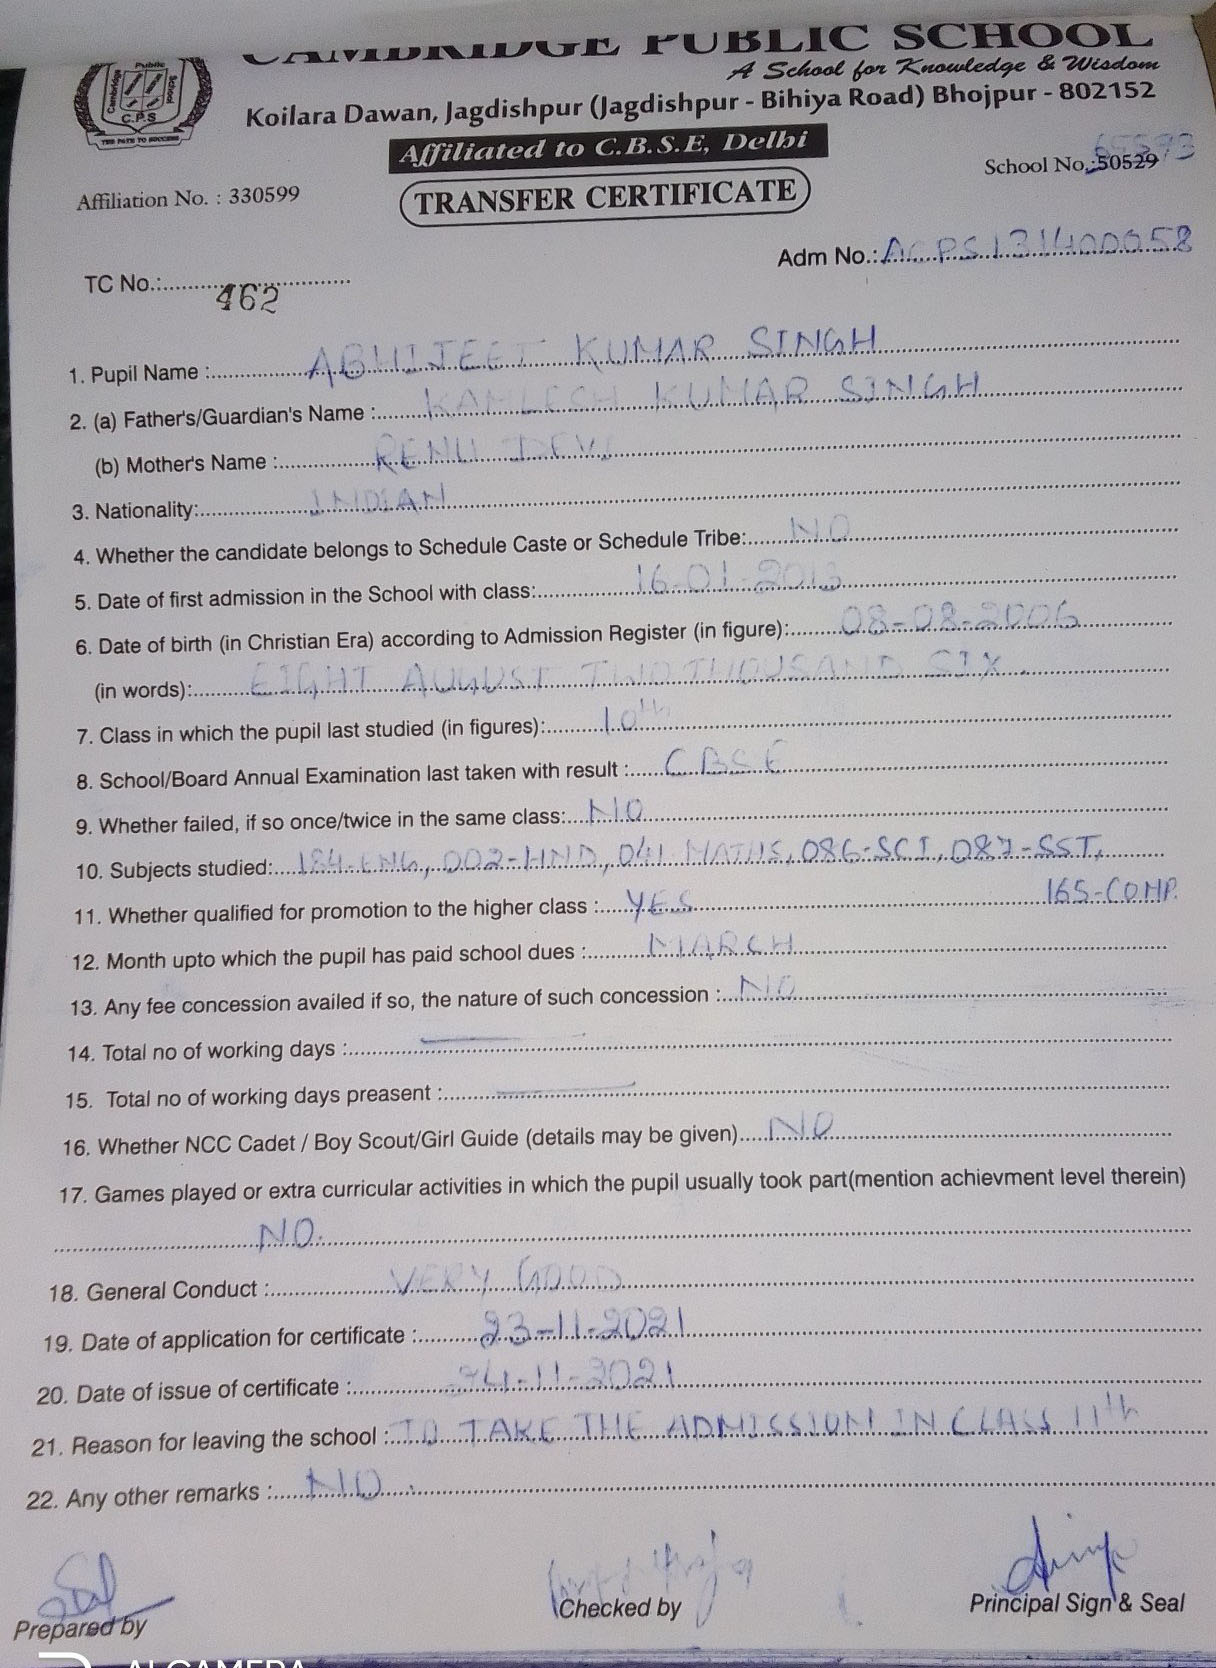 CAMBRIDGE PUBLIC SCHOOL
A School for Knowledge & Wisdom
Cambridge Public School
C.P.S
THE PATH TO SUCCESS
Koilara Dawan, Jagdishpur (Jagdishpur - Bihiya Road) Bhojpur - 802152
Affiliated to C.B.S.E, Delhi
Affiliation No. : 330599
School No.:50529
TRANSFER CERTIFICATE
TC No.: 462
Adm No.: ACPS131400058
1. Pupil Name : ABHIJEET KUMAR SINGH
2. (a) Father's/Guardian's Name : KAMLESH KUMAR SINGH
(b) Mother's Name : RENU DEVI
3. Nationality: INDIAN
4. Whether the candidate belongs to Schedule Caste or Schedule Tribe: NO
5. Date of first admission in the School with class: 16-01-2013
6. Date of birth (in Christian Era) according to Admission Register (in figure): 08-08-2006
(in words): EIGHT AUGUST TWO THOUSAND SIX
7. Class in which the pupil last studied (in figures): 10th
8. School/Board Annual Examination last taken with result : CBSE
9. Whether failed, if so once/twice in the same class: NO
10. Subjects studied: 184-ENG, 002-HND, 041-MATHS, 086-SCI, 087-SST,
165-COMP.
11. Whether qualified for promotion to the higher class : YES
12. Month upto which the pupil has paid school dues : MARCH
13. Any fee concession availed if so, the nature of such concession : NO
14. Total no of working days :
15. Total no of working days preasent :
16. Whether NCC Cadet / Boy Scout/Girl Guide (details may be given) NO
17. Games played or extra curricular activities in which the pupil usually took part(mention achievment level therein)
NO.
18. General Conduct : VERY GOOD
19. Date of application for certificate : 23-11-2021
20. Date of issue of certificate : 24-11-2021
21. Reason for leaving the school : TO TAKE THE ADMISSION IN CLASS 11th
22. Any other remarks : NO
Prepared by
Checked by
Principal Sign & Seal
AI CAMERA